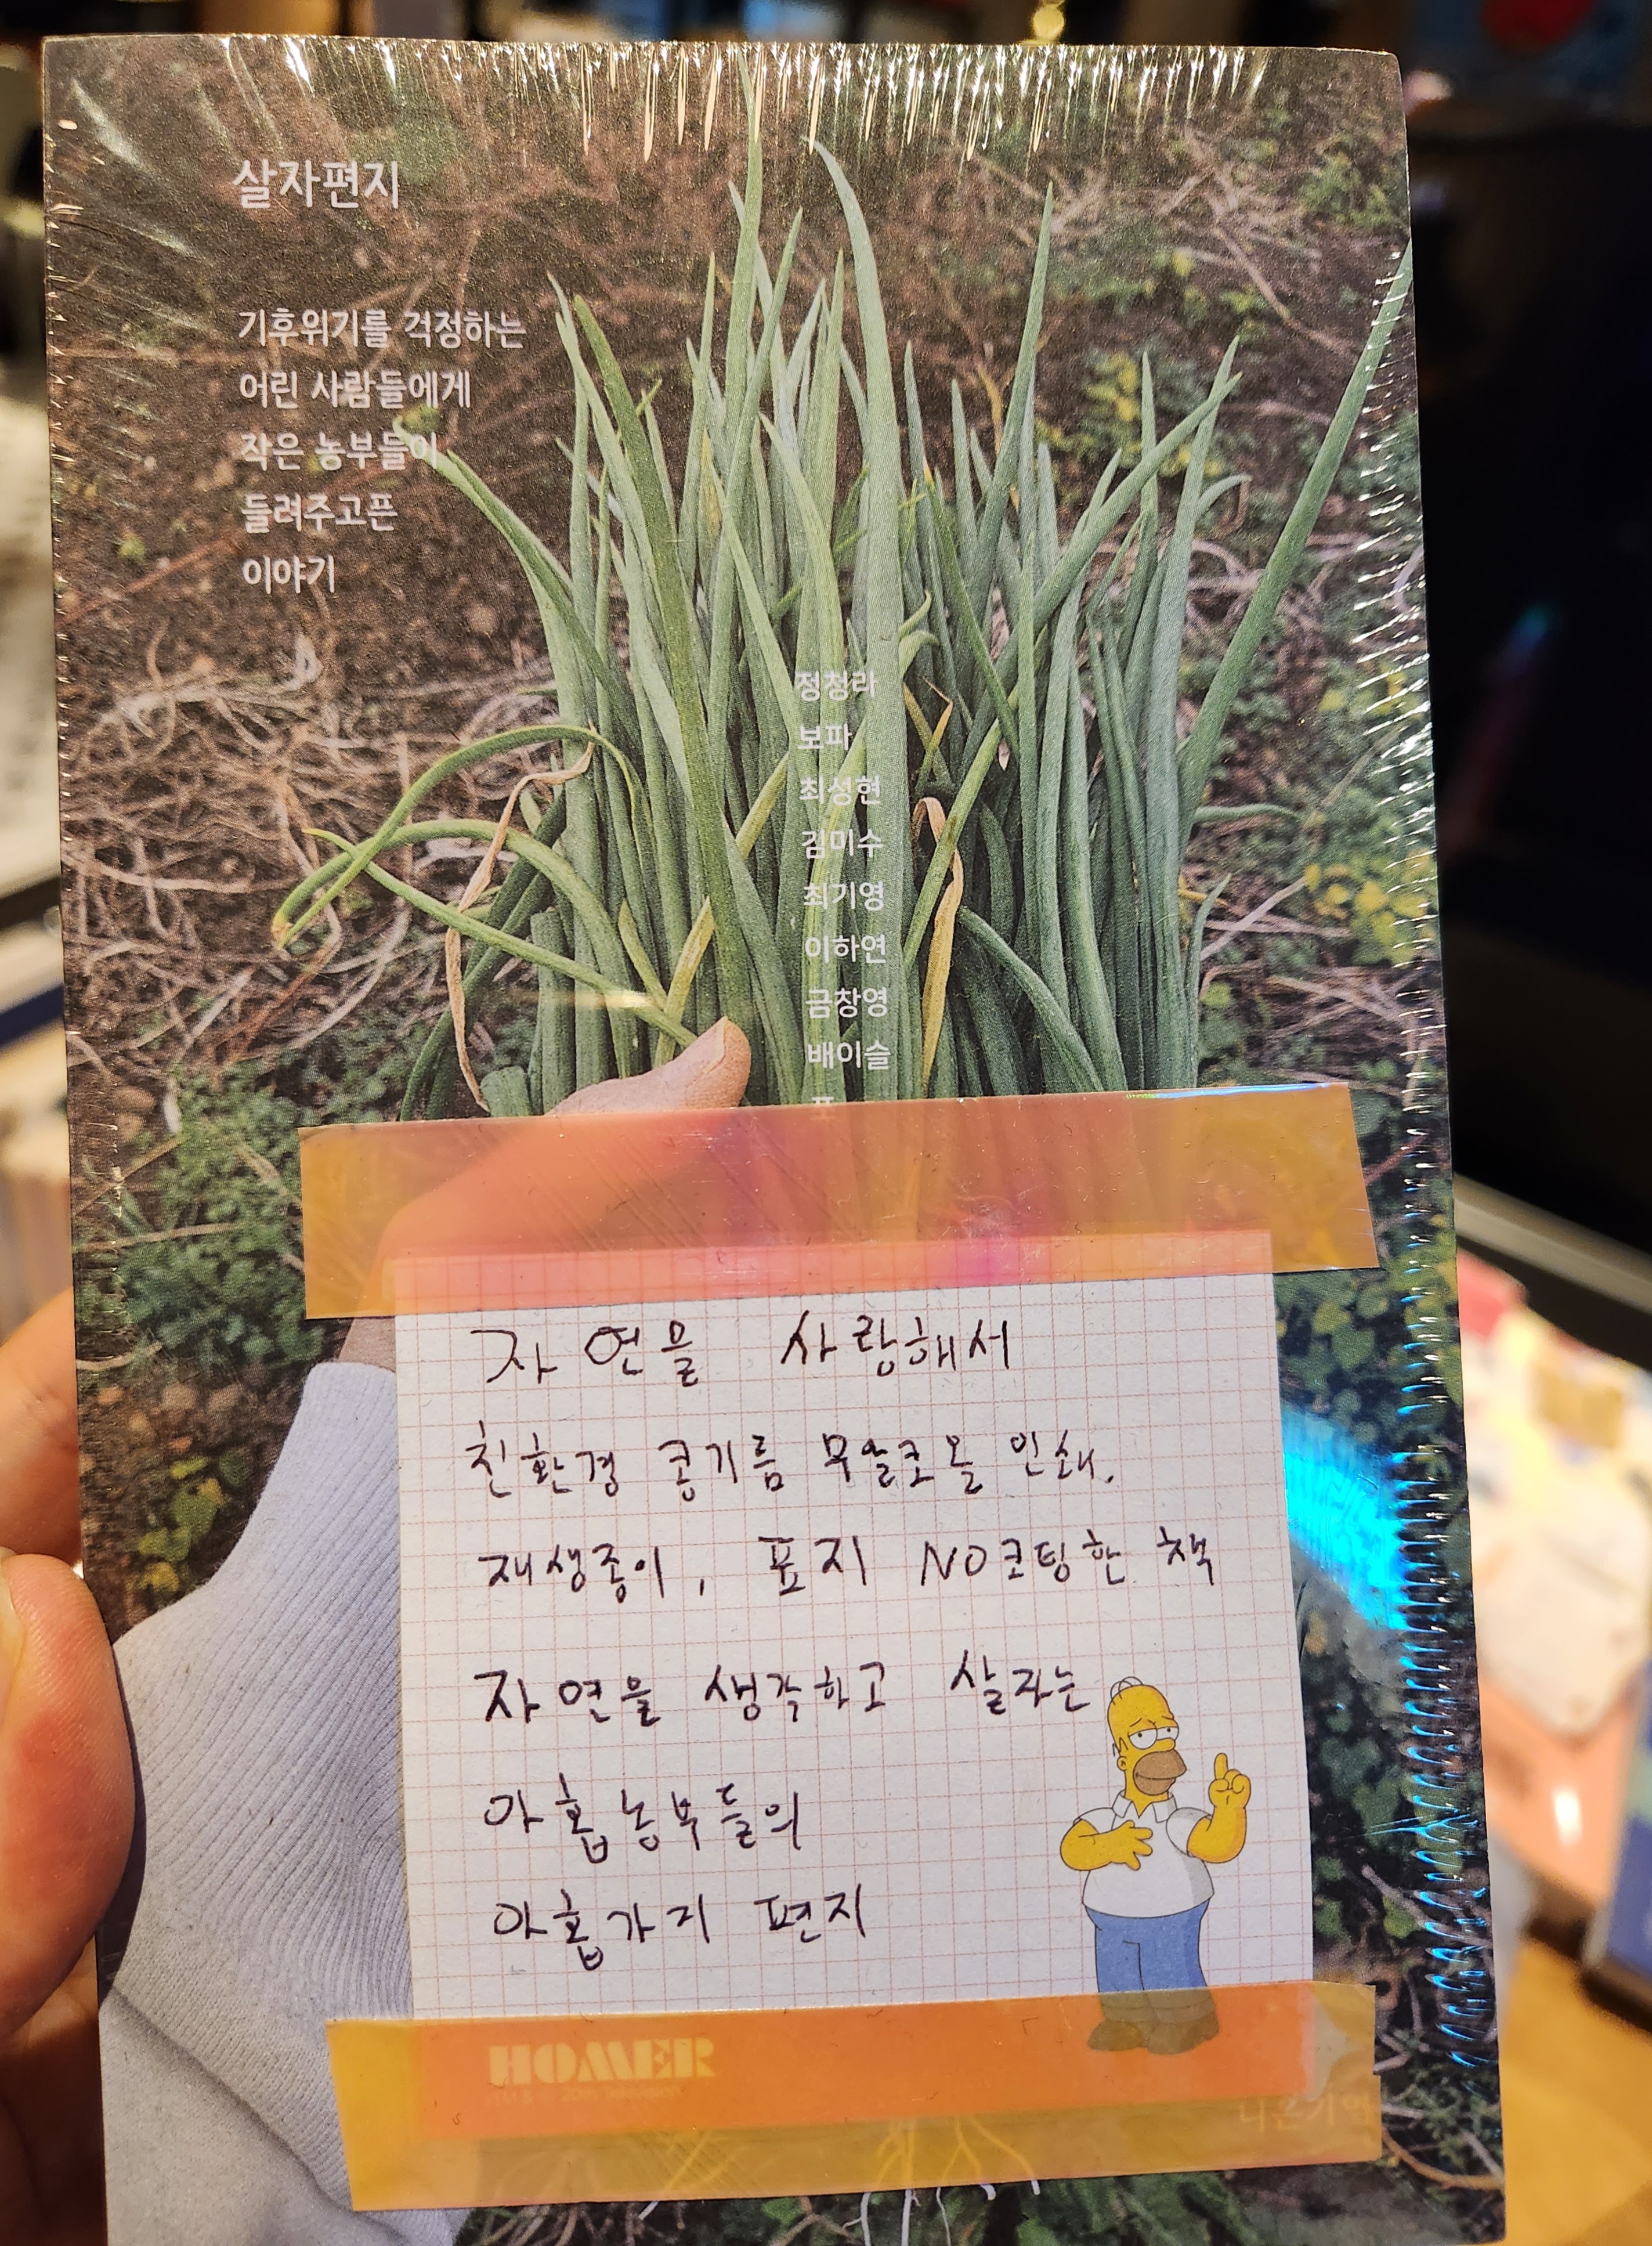 살자편지
기후위기를 걱정하는
어린 사람들에게
작은 농부들이
들려주고픈
이야기
정청라
보파
최성현
김미수
최기영
이하연
금창영
배이슬
자연을 사랑해서
친환경 콩기름 무알코올 인쇄,
재생종이, 표지 NO코팅한 책
자연을 생각하고 살자는
아홉농부들의
아홉가지 편지
HOMER